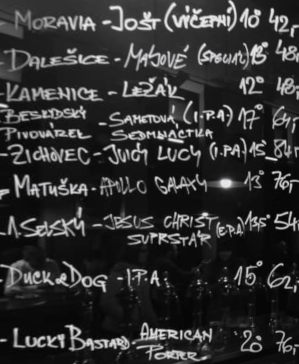 MORAVIA - JOŠT (VÝČEPNÍ) 10° 42,-
- DALEŠICE - MAJOVÉ (SPECIÁL) 13° 48,-
- KAMENICE - LEŽÁK 12° 48,-
BESKYDSKÝ - SAMETOVÁ (I.P.A) 17° 64,-
PIVOVÁREK SEDMNÁCTKA
- ZICHOVEC - JUICY LUCY (I.P.A) 15° 84,-
- MATUŠKA - APOLLO GALAXY 13° 76,-
SELSKÝ - JESUS CHRIST (E.P.A) 13,5° 54,-
SUPRSTAR
DUCK & DOG - I.P.A. 15° 62,-
- LUCKY BASTARD - AMERICAN 20° 76,-
PORTER